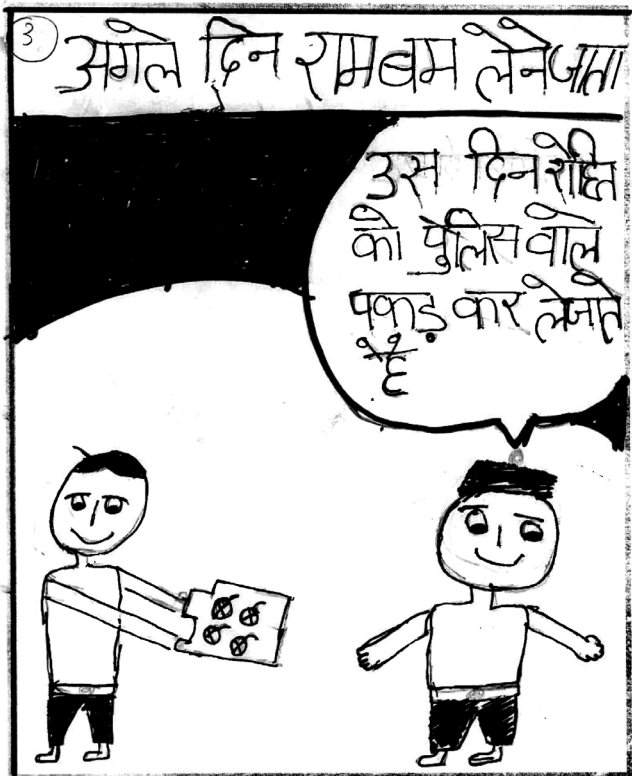 ३
अगले दिन राम बम लेने जाता
उस दिन रोहित
को पुलिस वाले
पकड़ कर लेजाते
है